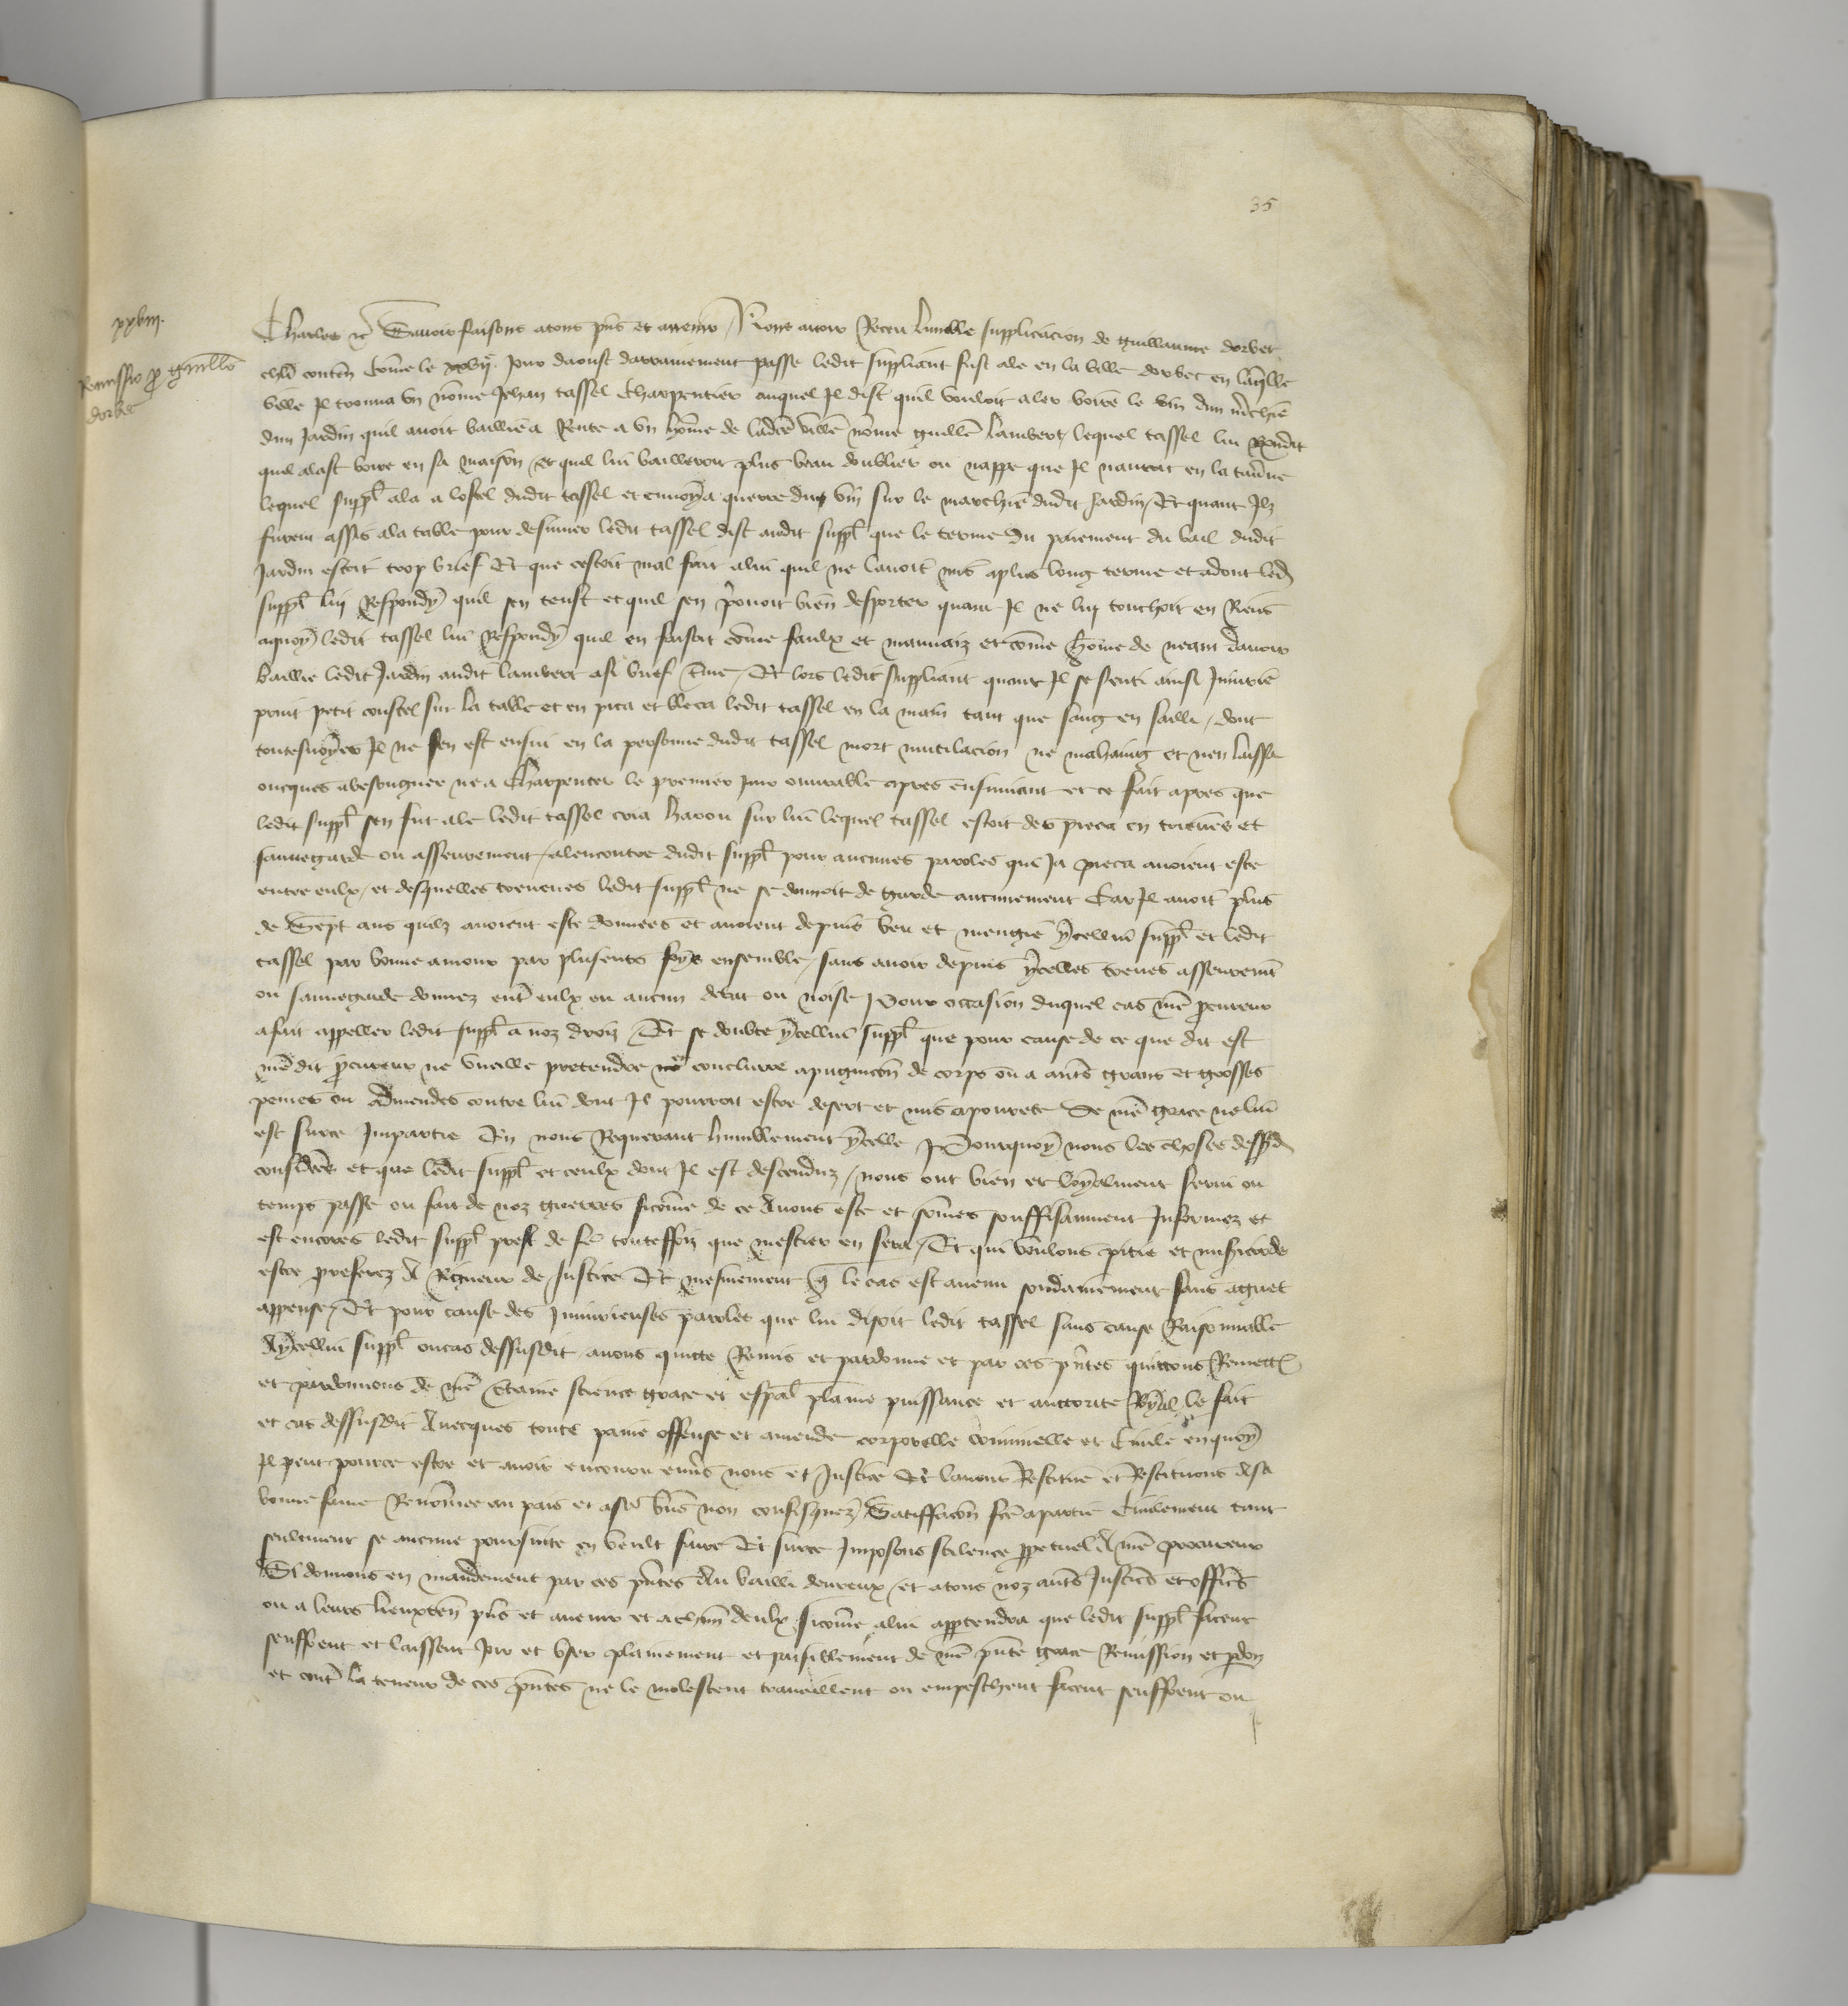 35
xxviii.
Remissio p Guillō
dorbec
Charles &c Savoir faisons a tous pñs et avenir / Nous avoir Receu humble supplicacion de Guillaume dorbec
contēn Cōme le xxvije Jour daoust darrainement passe ledit suppliant fust ale en la ville dorbec en laq̄lle
ville Il trouva un nōme Jehan tassel Charpentier auquel Il dist quil vouloit aler boire le vin dun m̄chie
dun Jardin quil avoit baillie a Rente a un hōme de ladicte ville nōme Guill̄e Lambert / lequel tassel lui Rendit
quil alast boire en sa maison / et quil lui bailleroit plus beau doublier ou nappe que Il nauroit en la tav̄ne
lequel suppl̄ ala a lostel dudit tassel et envoya querre du vin sur le marchie dudit Jardin / Et quant Ilz
furent assis a la table pour desjuner ledit tassel dist audit suppl̄ que le terme du paiement du bail dudit
Jardin estoit trop brief Et que cestoit mal fait a lui quil ne lavoit mis a plus long terme et adont led
suppl̄ luy Respondy quil sen teust et quil sen povoit bien desporter quant Il ne luy touchoit en Riens
aquoy ledit tassel lui Respondy quil en faisoit cōme faulx et mauvaiz et cōme hōme de neant davoir
baillie ledit Jardin audit lambert a si brief t̄me / Et lors ledit suppliant quant Il se senti ainsi Injurie
print petit coustel sur la table et en pica et bleca ledit tassel en la main tant que sang en sailli / dont
toutesvoyes Il ne sen est ensui en la personne dudit tassel mort mutilacion ne mahaing et nen laissa
oncques a besongner ne a Charpenter le premier jour ouvrable apres ensuivant et ce fait apres que
ledit suppl̄ sen fut ale ledit tassel cria harou sur lui lequel tassel estoit des pieca en trieves et
sauvegarde ou asseurement / alencontre dudit suppl̄ pour aucunes paroles que Ja pieca avoient este
entre eulx / et desquelles treuves ledit suppl̄ ne se donnoit de garde aucunement Car Il avoit plus
de Sept ans quilz avoient este donnees et avoient depuis beu et mengie ycellui suppl̄ et ledit
tassel par bonne amour par plusieurs foys ensemble / sans avoir depuis ycelles treues asseuremt
ou sauvegarde donnez ent̄ eulx eu aucun debat ou noise Pour occasion duquel cas nr̄e p̄cureur
a fait appeller ledit suppl̄ a noz droiz / Et se doubte ycellui suppl̄ que pour cause de ce que dit est
nr̄e dit p̄cureur ne vueille pretendre concluure a pugnicōn de corps ou a aut̄s grans et grosses
peines ou Admendes contre lui dont Il pourroit estre desert et mis a povrete Se nr̄e grace ne lui
est surce Impartie En nous Requerant humblement ycelle / Pourquoy nous les choses dessusd
consid̄ees et que ledit suppl̄ et ceulx dont Il est descenduz / nous ont bien et loyalment servi ou
temps passe ou fait de noz guerres sicōme de ce Avons este et sōmes souffisanment Informez et
est encores ledit suppl̄ prest de f̄e touteffoiz que mestier en sera / Et qui voulons pitie et mis̄icorde
estre preferez A Rigueur de Justice Et mesmement q̄ le cas est avenu soudainement sans aguet
appense / Et pour cause des Injurieuses paroles que lui disoit ledit tassel sans cause Raisonnable
A ycellui suppl̄ ou cas dessusdit avons quitte Remis et pardonne et par ces pñtes quittons Remett̄
et pardonnons de nr̄e c̄taine science grace et esp̄al plaine puissance et auctorite Royal le fait
et cas dessusdit Avecques toute paine offense et amende corporelle criminelle et Civile en quoy
Il peut pource estre et avoir encouru env̄s nous et Justice Et lavons Restitue et Restituons A sa
bonne fame Renōmee au pais et a ses biēs non confisquez / Satisfacōn fc̄e a partie Civilement tant
seulement se aucune poursuite en veult faire Et surce Imposons scilence p̄petuel A nr̄e procureur
Si donnons en mandement par ces pñtes Au bailli devreux / et a tous noz aut̄s Justic̄s et offic̄s
ou a leurs lieuxten̄ pñs et avenir et a ch̄un deulx sicōme a lui app̄tendra que ledit suppl̄ facent
seuffrent et laissent Joir et user plainement et paisiblement de nr̄e pñte grace Remission et p̄don
et cont̄ la teneur de ces pñtes ne le molestent travaillent ou empeschent facent seuffrent ou